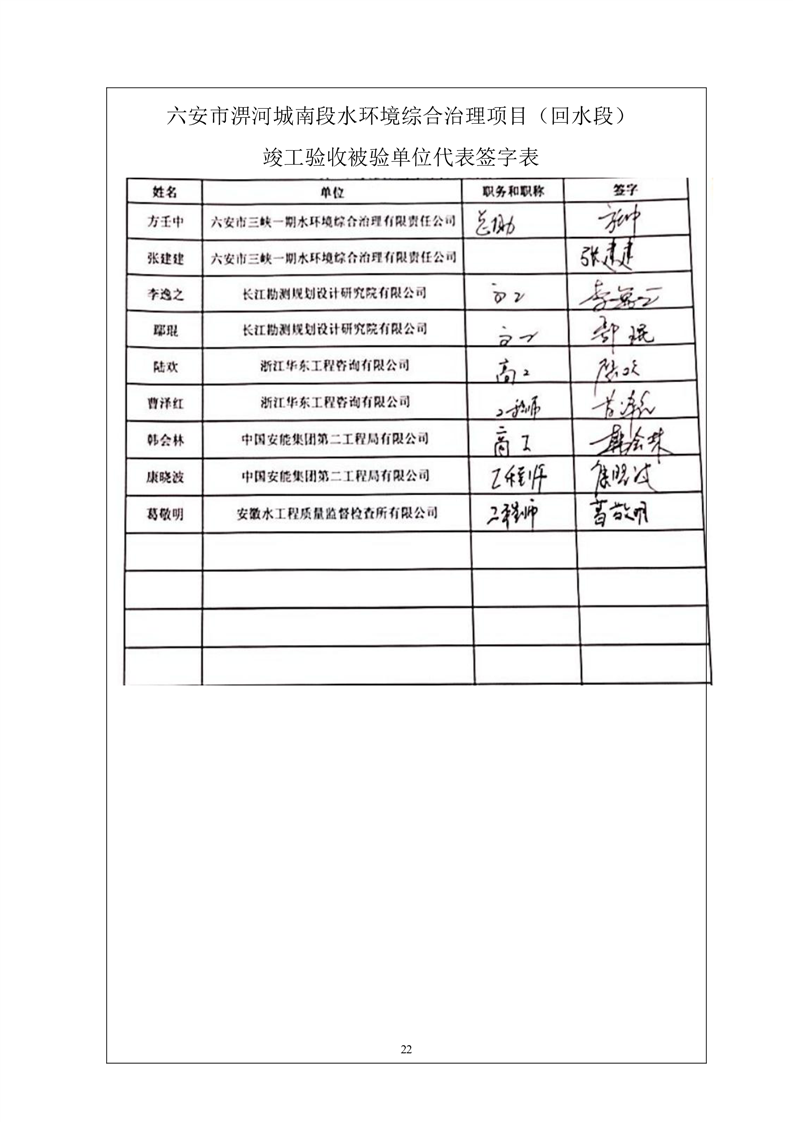 六安市淠河城南段水环境综合治理项目（回水段）
竣工验收被验单位代表签字表
姓名 单位 职务和职称 签字
方壬中 六安市三峡一期水环境综合治理有限责任公司 总助
张建建 六安市三峡一期水环境综合治理有限责任公司 张建建
李逸之 长江勘测规划设计研究院有限公司 高工 李逸之
鄢琨 长江勘测规划设计研究院有限公司 高工 鄢琨
陆欢 浙江华东工程咨询有限公司 高工 陆欢
曹泽红 浙江华东工程咨询有限公司 工程师 曹泽红
韩会林 中国安能集团第二工程局有限公司 高工 韩会林
康晓波 中国安能集团第二工程局有限公司 工程师 康晓波
葛敬明 安徽水工程质量监督检查所有限公司 工程师 葛敬明
22